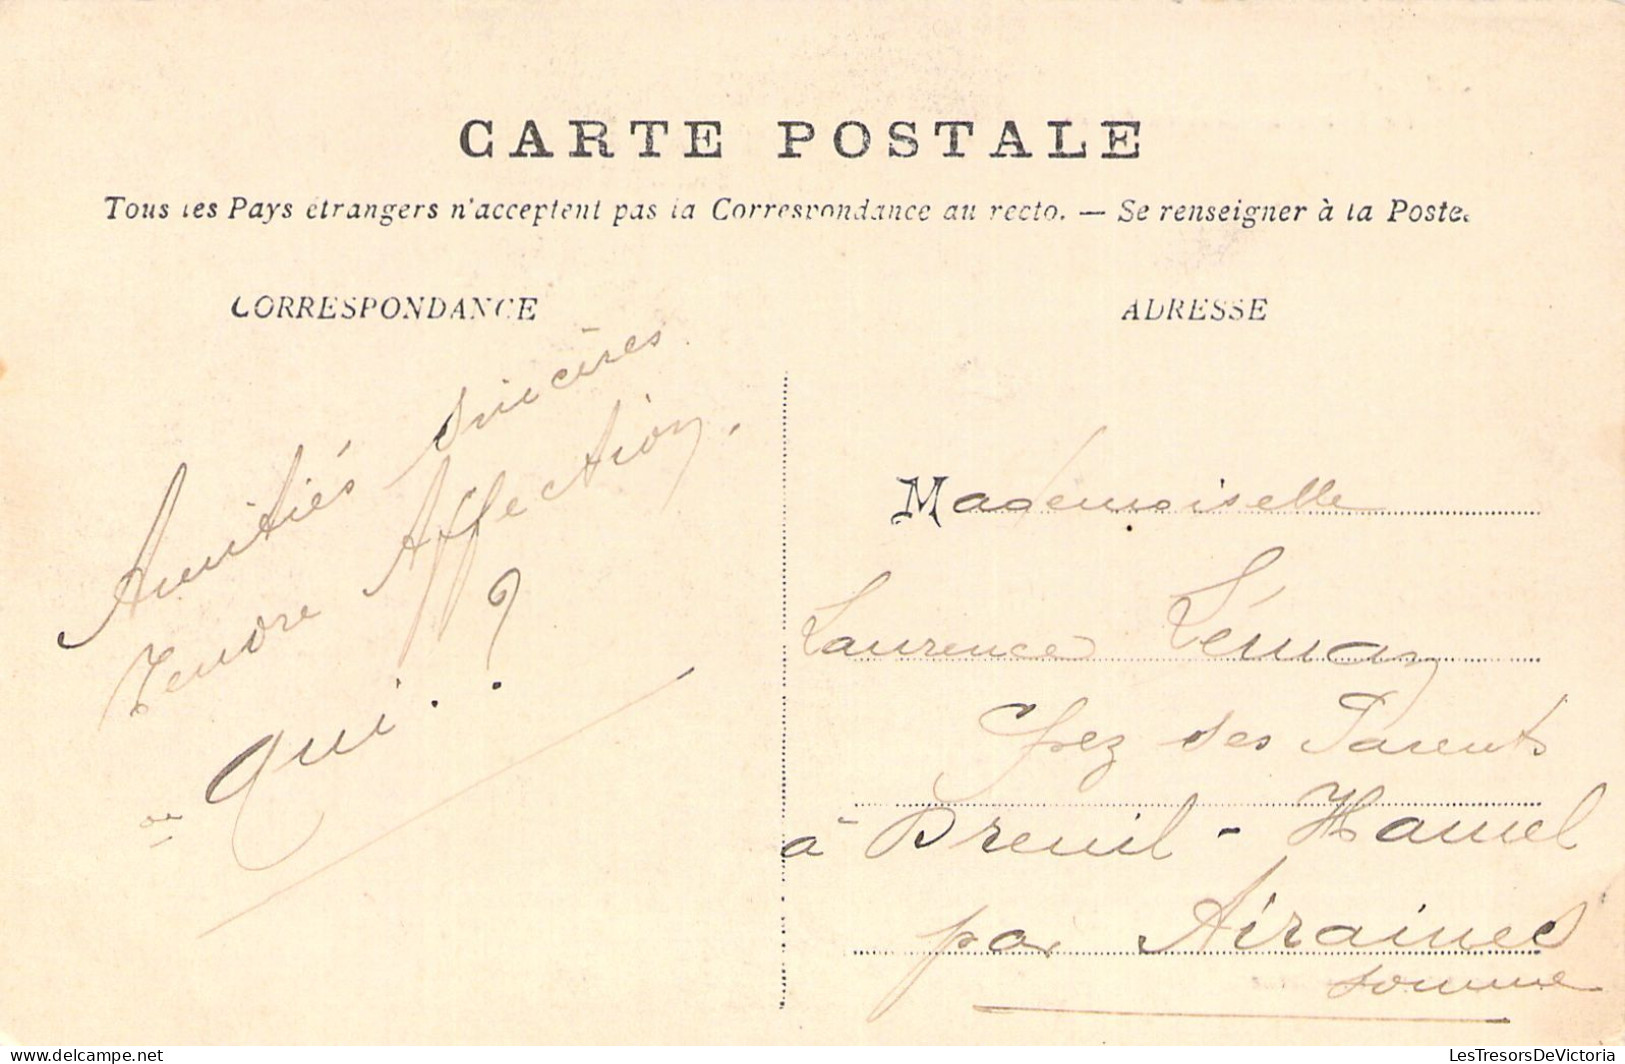 CARTE POSTALE
Tous les Pays étrangers n'acceptent pas la Correspondance au recto. — Se renseigner à la Poste.
CORRESPONDANCE
Amitiés sincères
Tendre Affection,
Qui..?
ADRESSE
Mademoiselle
Laurence
Chez ses Parents
à Dreuil - Hamel
par Airaines
Somme
LesTresorsDeVictoria